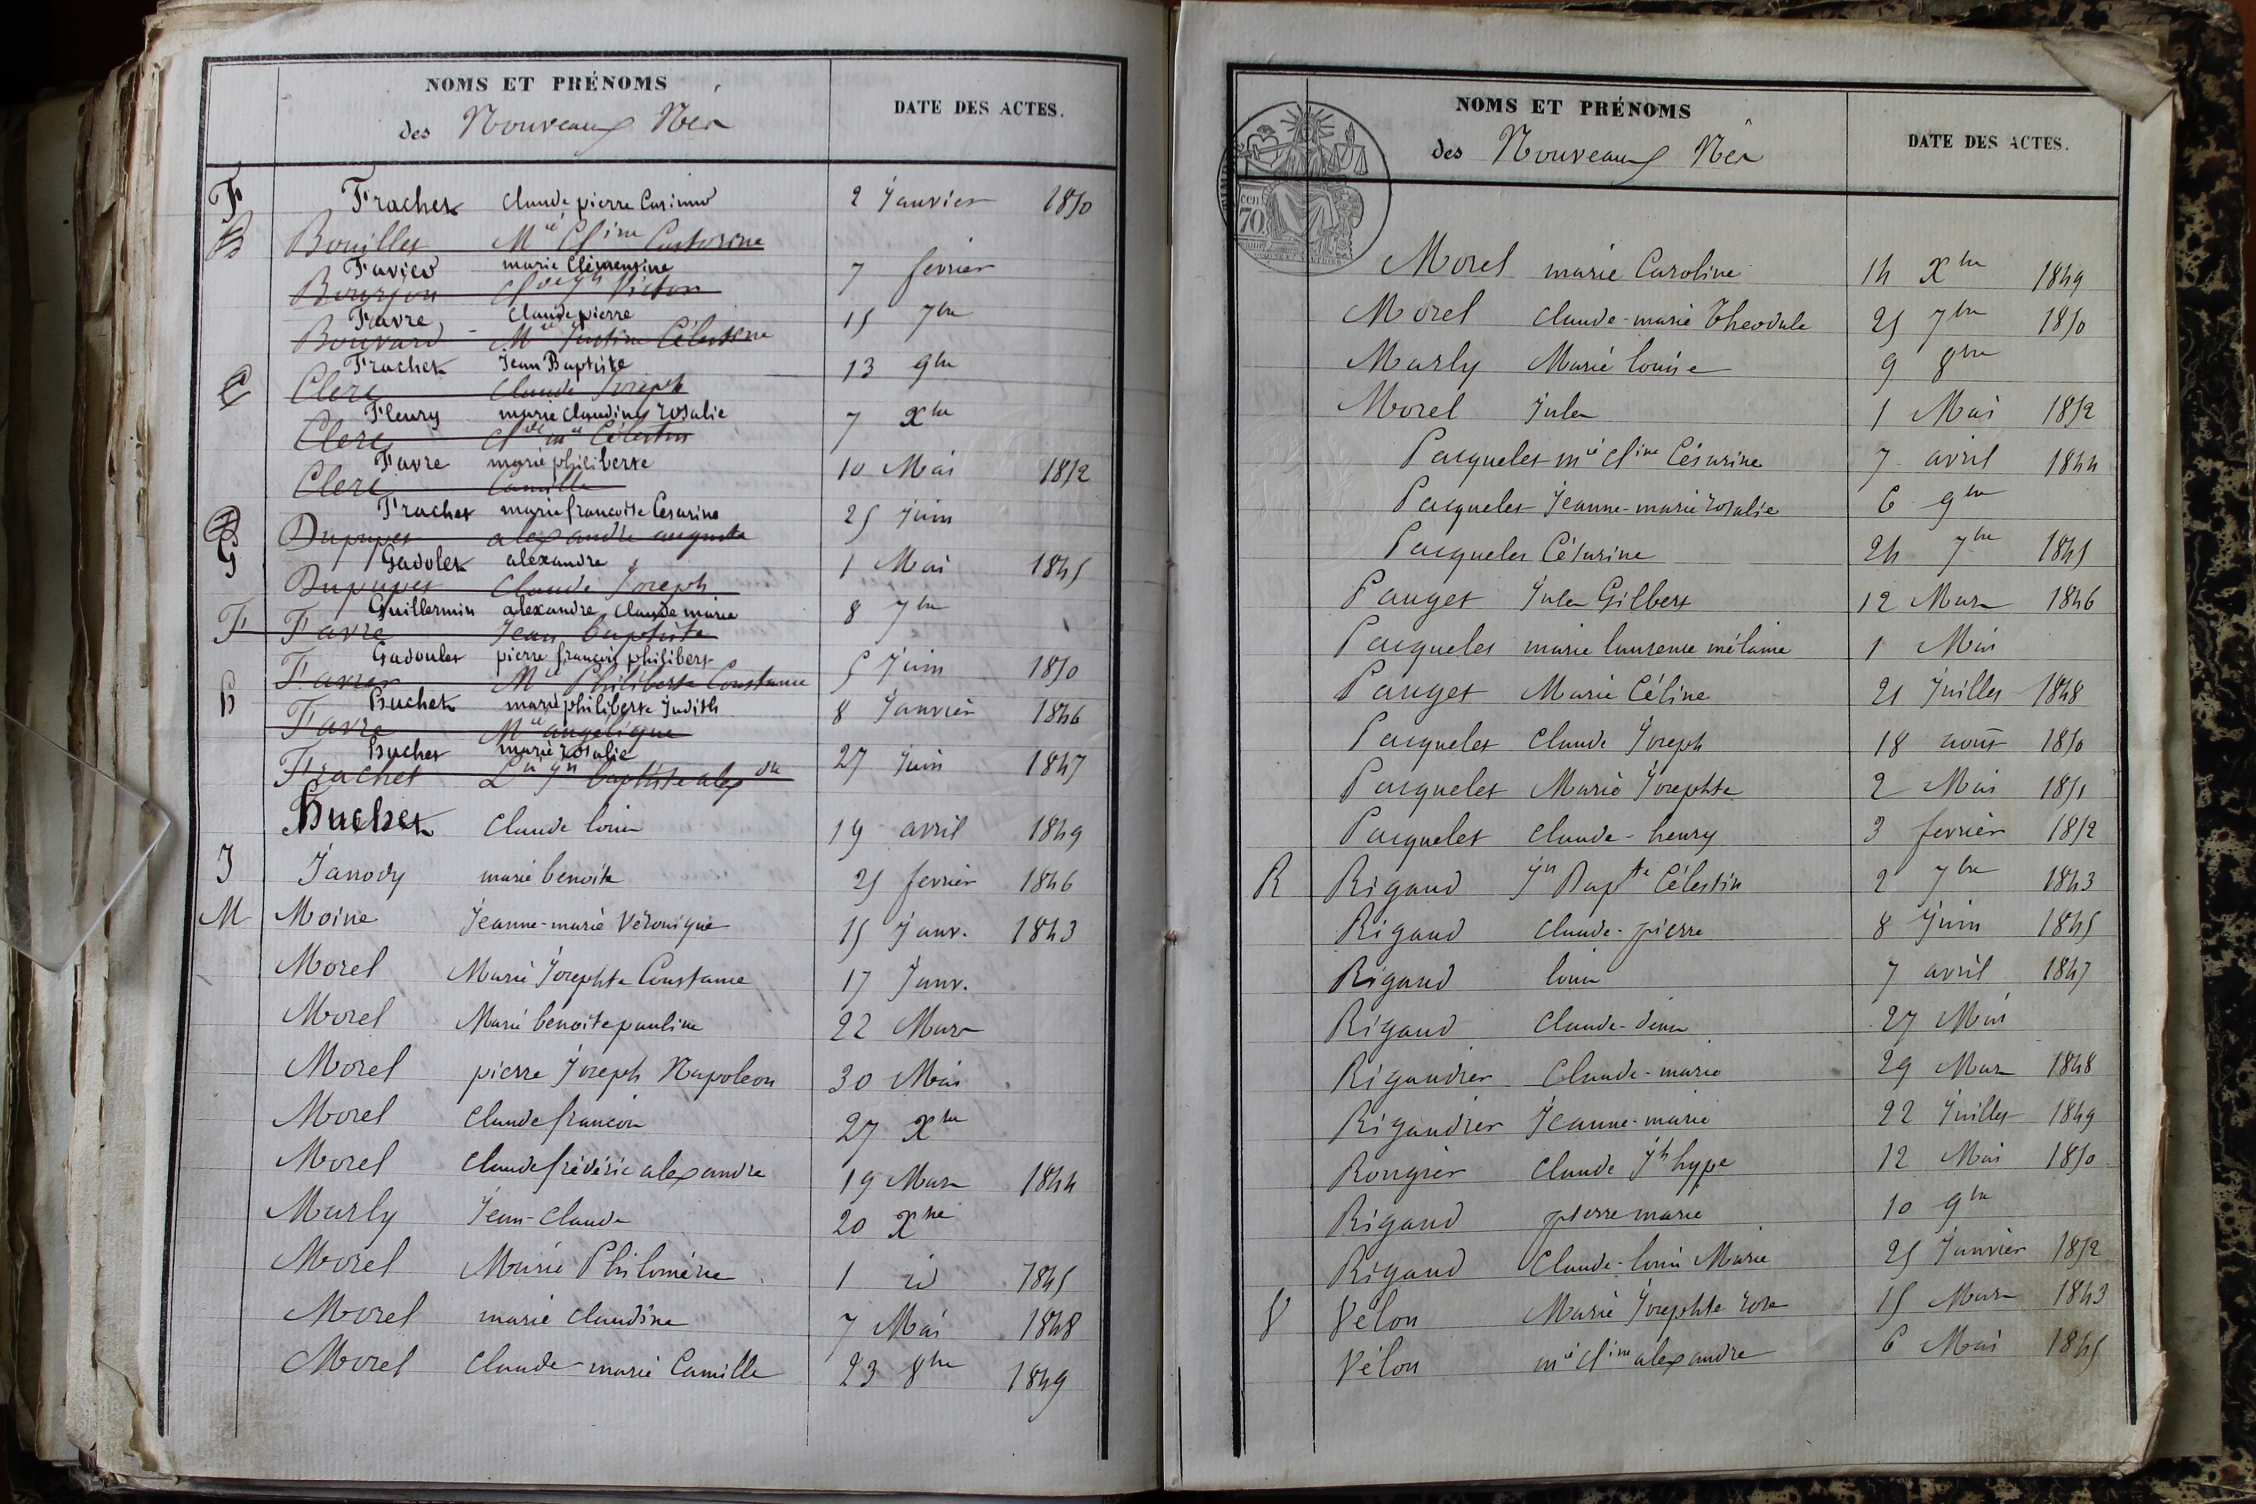 NOMS ET PRÉNOMS
des Nouveaux Nés
DATE DES ACTES.
F Frachet Claude pierre Casimir 2 Janvier 1850
B Bouillet Mie Cline
Favier marie Clémentine 7 février
Bourjon Victon
Favre Claude pierre 15 7bre
Bouvard Mie Justine Célestine
Frachet Jean Baptiste 13 9bre
C Clerc Claude Joseph
Fleury marie Claudine rosalie 7 Xbre
Clerc Clde mie Célestin
Favre marie philiberte 10 Mai 1852
Clerc Camille
Frachet marie francoise Césarine 25 juin
D Dupupet alexandre auguste
G Gadolet alexandre 1 Mai 1845
Dupupet Claude Joseph
Guillermin alexandre Claude marie 8 7bre
F Favre Jean baptiste
Gadoulet pierre françois philibert 5 Juin 1850
Favier Mie Philiberte Constance
H Huchet marie philiberte Judith 8 Janvier 1846
Favre Mie angélique
Huchet marie rosalie 27 Juin 1847
Frachet Ls Jn baptiste alexdre
Huchet Claude louis 19 avril 1849
J Janody marie benoite 25 fevrier 1846
M Moine Jeanne-marie Véronique 15 Janv. 1843
Morel Marie Josephte Constance 17 Janv.
Morel Marie benoite pauline 22 Mars
Morel pierre Joseph Napoleon 30 Mai
Morel Claude francois 27 Xbre
Morel Claude frédéric alexandre 19 Mars 1844
Marly Jean-Claude 20 Xbre
Morel Marie Philomène 1 id 1845
Morel marie Claudine 7 Mai 1848
Morel Claude-marie Camille 23 8bre 1849
NOMS ET PRÉNOMS
des Nouveaux Nés
DATE DES ACTES.
70
Morel marie Caroline 14 Xbre 1849
Morel Claude-marie Theodule 25 7bre 1850
Marly Marie louise 9 8bre
Morel Jules 1 Mai 1852
Pacquelet mie Cline Césarine 7 avril 1844
Pacquelet Jeanne-marie rosalie 6 9bre
Pacquelet Césarine 24 7bre 1845
Pauget Jules Gilbert 12 Mars 1846
Pacquelet marie laurence mélanie 1 Mai
Pauget Marie Céline 21 Juillet 1848
Pacquelet Claude Joseph 18 août 1850
Pacquelet Marie Josephte 2 Mai 1851
Pacquelet Claude-henry 3 fevrier 1852
R Rigaud Jn Bapte Célestin 2 7bre 1843
Rigaud Claude-pierre 8 Juin 1845
Rigaud louis 7 avril 1847
Rigaud Claude-denis 27 Mai
Rigaudier Claude-marie 29 Mars 1848
Rigaudier Jeanne-marie 22 Juillet 1849
Rougier Claude Jh hype 12 Mai 1850
Rigaud pierre marie 10 9bre
Rigaud Claude-louis Marie 25 Janvier 1852
V Vélon Marie Josephte rose 15 Mars 1843
Vélon mie Cline alexandre 6 Mai 1845